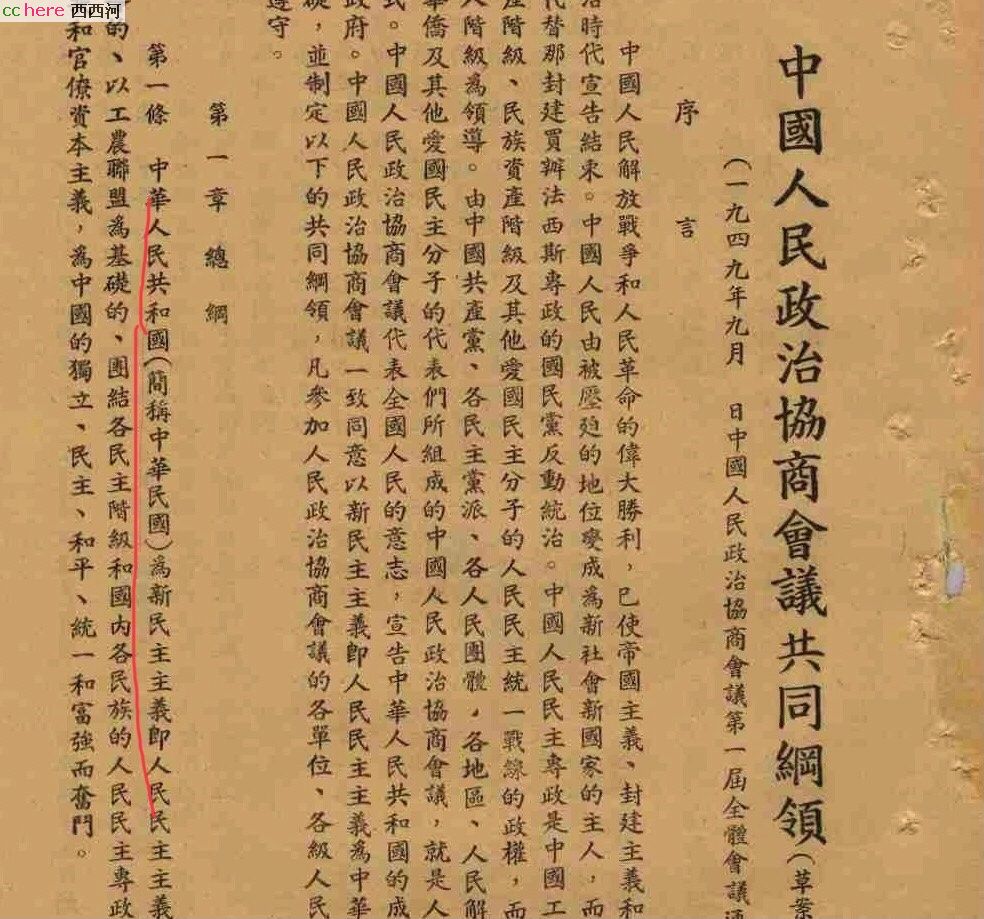 cchere 西西河
中國人民政治協商會議共同綱領(草案
(一九四九年九月 日中國人民政治協商會議第一屆全體會議通
序 言
中國人民解放戰爭和人民革命的偉大勝利,已使帝國主義、封建主義和
治時代宣告結束。中國人民由被壓迫的地位變成爲新社會新國家的主人,而
代替那封建買辦法西斯專政的國民黨反動統治。中國人民民主專政是中國工
產階級、民族資產階級及其他愛國民主分子的人民民主統一戰線的政權,而
人階級爲領導。由中國共產黨、各民主黨派、各人民團體,各地區、人民解
華僑及其他愛國民主分子的代表們所組成的中國人民政治協商會議,就是人
式。中國人民政治協商會議代表全國人民的意志,宣告中華人民共和國的成
政府。中國人民政治協商會議一致同意以新民主主義即人民民主主義爲中華
礎,並制定以下的共同綱領,凡參加人民政治協商會議的各單位、各級人民
遵守。
第一章 總綱
第一條 中華人民共和國(簡稱中華民國)爲新民主主義即人民民主主義
的、以工農聯盟爲基礎的、團結各民主階級和國內各民族的人民民主專政
和官僚資本主義,爲中國的獨立、民主、和平、統一和富強而奮鬥。